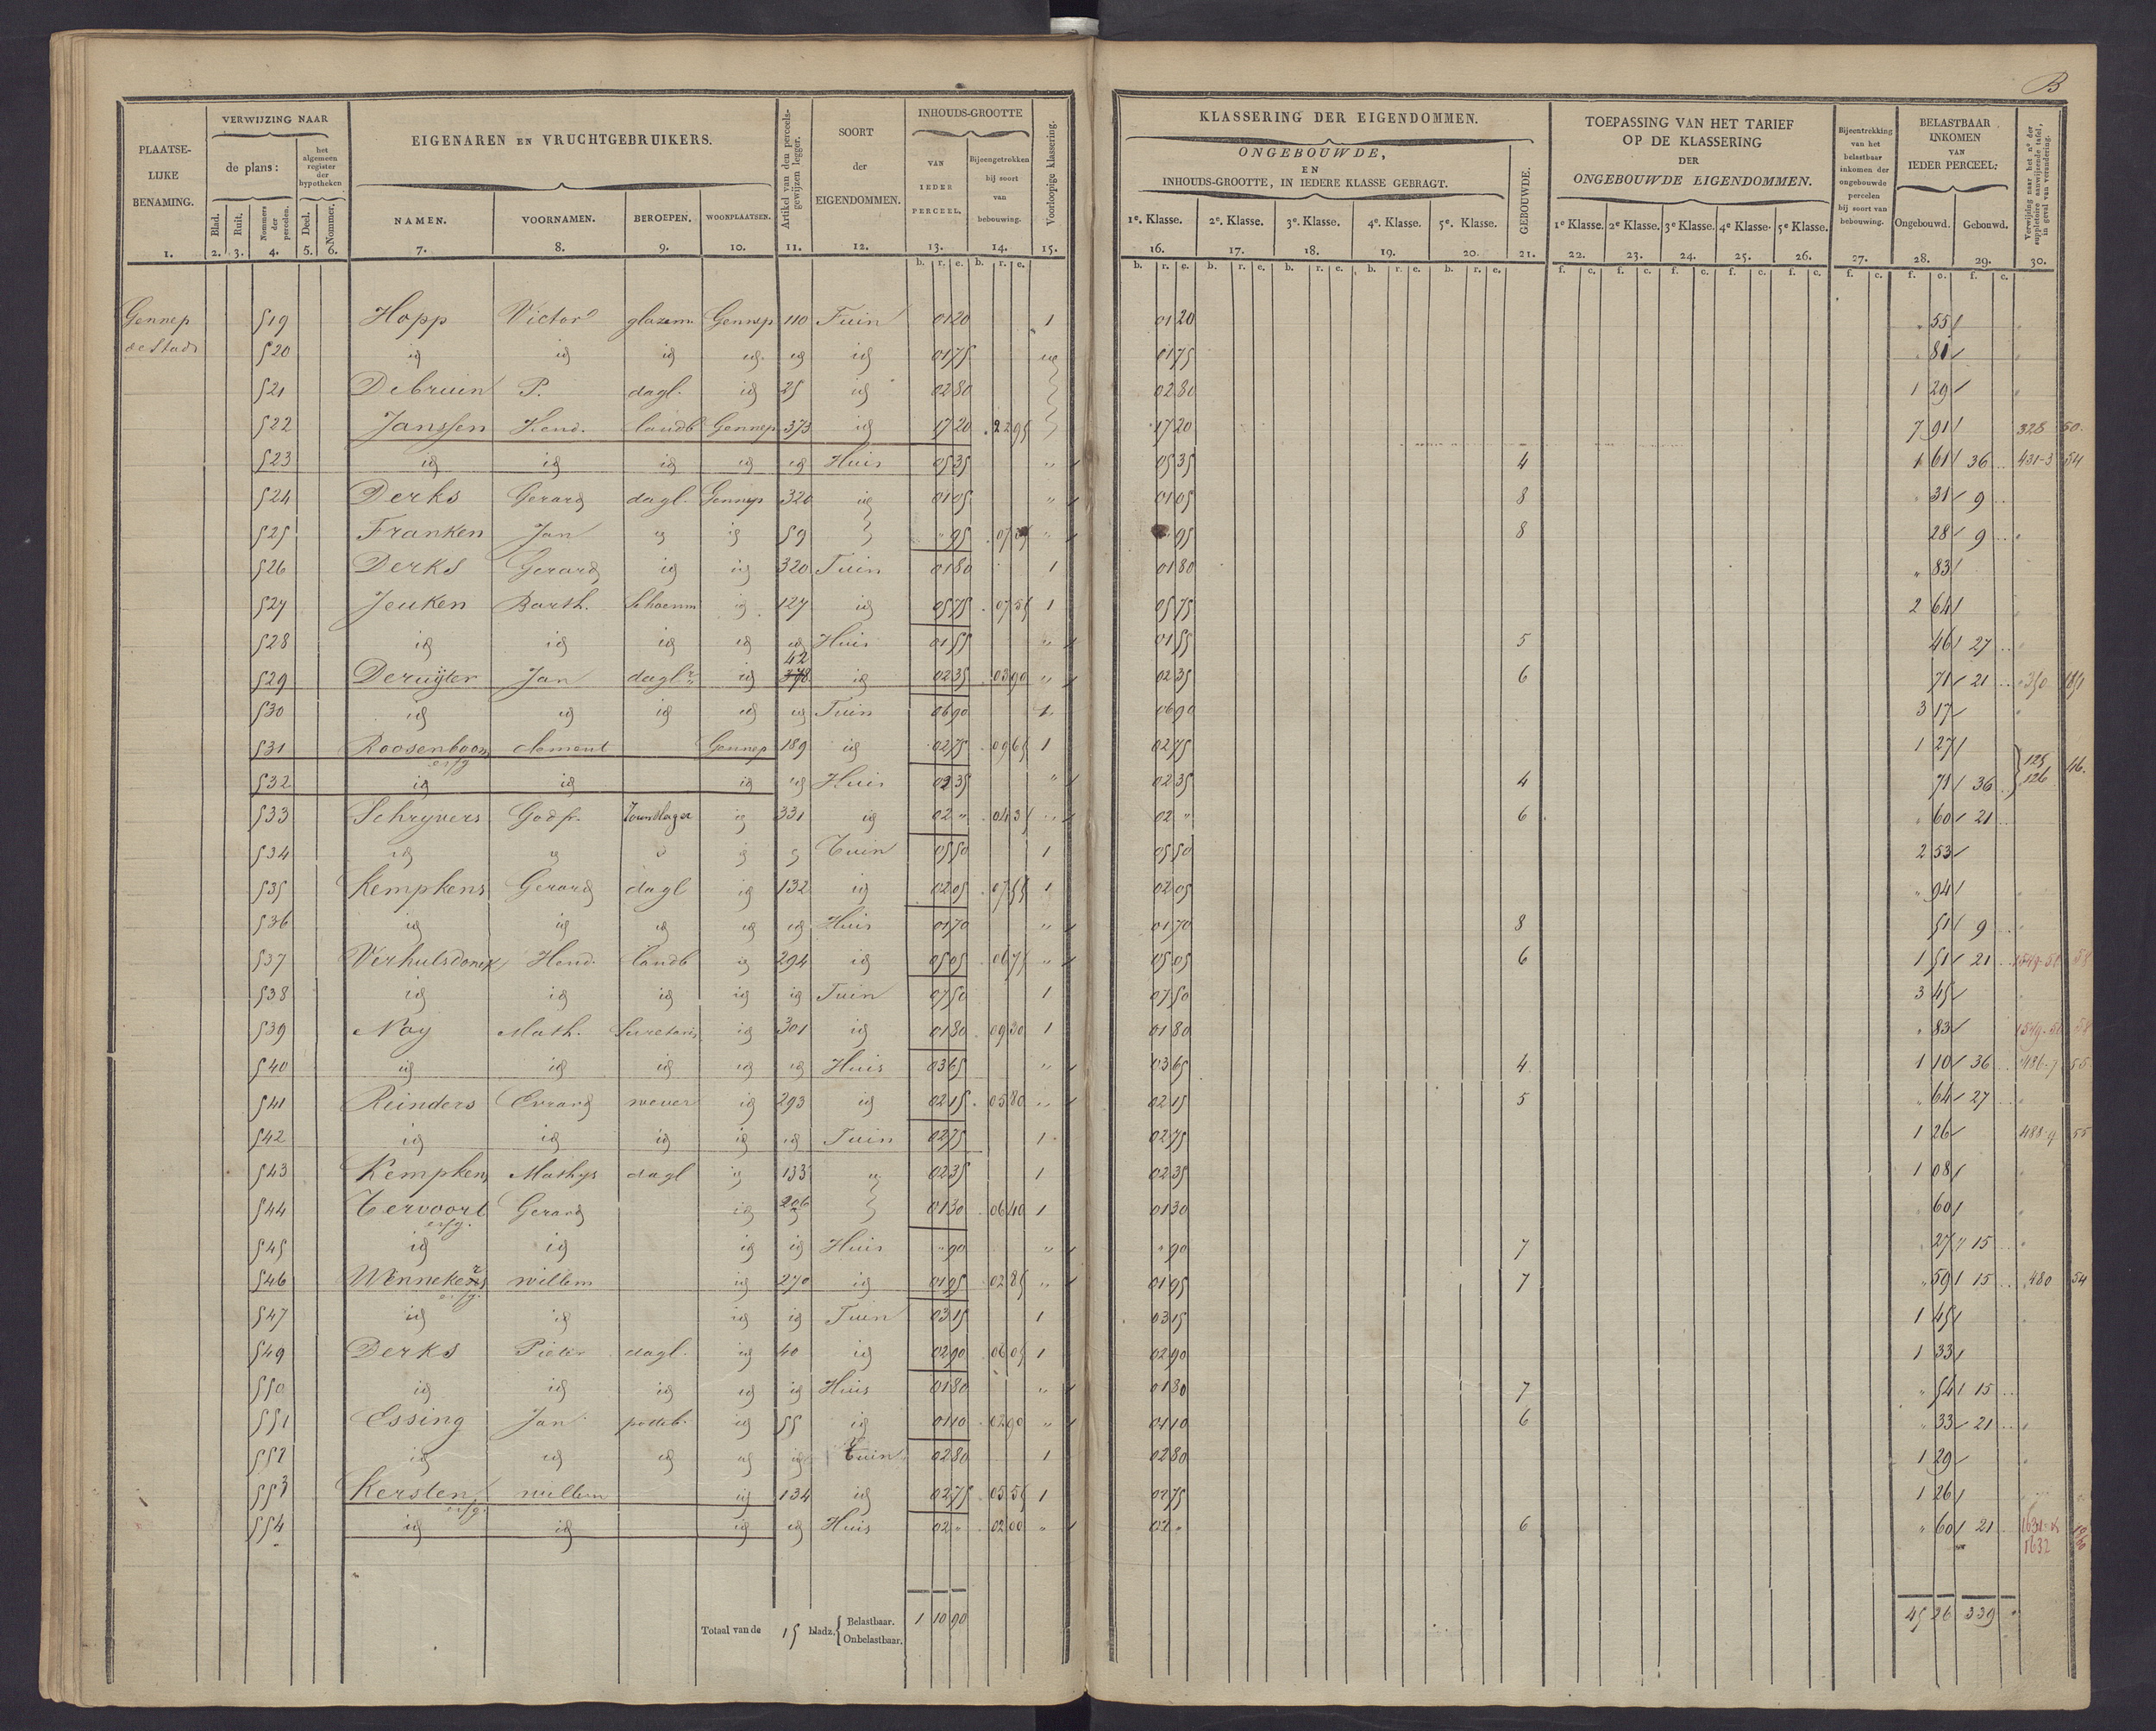 B
PLAATSE-LIJKE BENAMING. 1.
VERWIJZING NAAR
de plans:
Blad. 2. Ruit. 3. Nommers der percelen. 4.
het algemeen register der hypotheken
Deel. 5. Nommer. 6.
EIGENAREN EN VRUCHTGEBRUIKERS.
NAMEN. 7. VOORNAMEN. 8. BEROEPEN. 9. WOONPLAATSEN. 10.
Artikel van den perceelsgewijzen legger. 11.
SOORT der EIGENDOMMEN. 12.
INHOUDS-GROOTTE
VAN IEDER PERCEEL. 13.
Bijeengetrokken bij soort van bebouwing. 14.
Voorloopige klassering. 15.
KLASSERING DER EIGENDOMMEN.
ONGEBOUWDE,
EN
INHOUDS-GROOTTE, IN IEDERE KLASSE GEBRAGT.
1e. Klasse. 16. 2e. Klasse. 17. 3e. Klasse. 18. 4e. Klasse. 19. 5e. Klasse. 20.
GEBOUWDE. 21.
TOEPASSING VAN HET TARIEF
OP DE KLASSERING
DER
ONGEBOUWDE EIGENDOMMEN.
1e Klasse. 22. 2e Klasse. 23. 3e Klasse. 24. 4e Klasse. 25. 5e Klasse. 26.
Bijeentrekking van het belastbaar inkomen der ongebouwde percelen bij soort van bebouwing. 27.
BELASTBAAR INKOMEN VAN IEDER PERCEEL:
Ongebouwd. 28. Gebouwd. 29.
Verwijzing naar het no. der suppletoire aanwijzende tafel, in geval van verandering. 30.
Gennep 519 Hopp Victor glazem Gennep 110 Tuin 01 20 1 01 20 55
de Stad 520 id id id id id id 01 75 id 01 75 81
521 Debruin P. dagl. id 25 id 02 80 02 80 1 29
522 Janssen Hend. landb Gennep 373 id 17 20 22 95 17 20 7 91 328 50.
523 id id id id id Huis 05 35 " 05 35 4 1 61 36 431-3 54
524 Derks Gerard dagl. Gennep 320 id 01 05 " 01 05 8 31 9
525 Franken Jan id id 59 " 95 " 95 8 28 9
526 Derks Gerard id id 320 Tuin 01 80 1 01 80 " 83
527 Jeuken Barth. Schoenm id 127 id 05 75 07 55 1 05 75 2 64
528 id id id id id Huis 01 55 " 01 55 5 46 27
529 Deruijter Jan daglr id 42 id 02 35 03 90 " 02 35 6 71 21 350 1851
530 id id id id id Tuin 06 90 1 06 90 3 17
531 Roosenboom erfg clement Gennep 189 id 02 75 09 65 1 02 75 1 27 125
532 id id id id Huis 02 35 " 02 35 4 71 36 126 46.
533 Schryvers Godfr. id 331 id 02 " 04 35 02 " 6 60 21
534 id id id id id Tuin 05 50 1 05 50 2 53
535 Kempkens Gerard dagl id 132 id 02 05 07 55 1 02 05 " 94
536 id id id id id Huis 01 70 " 01 70 8 51 9
537 Verhulsdonck Hend. landb id 294 id 05 05 06 75 " 05 05 6 1 51 21 58
538 id id id id id Tuin 07 50 1 07 50 3 45
539 Noy Math. Secretaris id 301 id 01 80 09 30 1 01 80 83 58
540 id id id id id Huis 03 65 " 03 65 4 1 10 36 486-7 55
541 Reinders Evrard wever id 293 id 02 15 05 80 " 02 15 5 " 64 27
542 id id id id id Tuin 02 75 1 02 75 1 26 488-9 55
543 Kempkens Mathys dagl id 133 id 02 35 1 02 35 1 08
544 Tervoort erfg. Gerard id 206 01 30 06 40 1 01 30 60
545 id id id id Huis " 90 " " 90 7 27 15
546 Wennekers erfg. willem id 270 id 01 95 02 85 " 01 95 7 " 59 15 480 54
547 id id id id Tuin 03 15 1 03 15 1 45
549 Derks Pieter dagl. id 40 id 02 90 06 05 1 02 90 1 33
550 id id id id id Huis 01 80 " 01 80 7 " 54 15
551 Essing Jan potteb. id 55 id 01 10 02 90 " 01 10 6 " 33 21
552 id id id id id Tuin 02 80 1 02 80 1 29
553 Kersten erfg. willem id 134 id 02 75 05 55 1 02 75 1 26
554 id id id id Huis 02 " 02 00 " 02 " 6 " 60 21 1632
Totaal van de 15 bladz. { Belastbaar. Onbelastbaar. 1 10 90 45 26 339